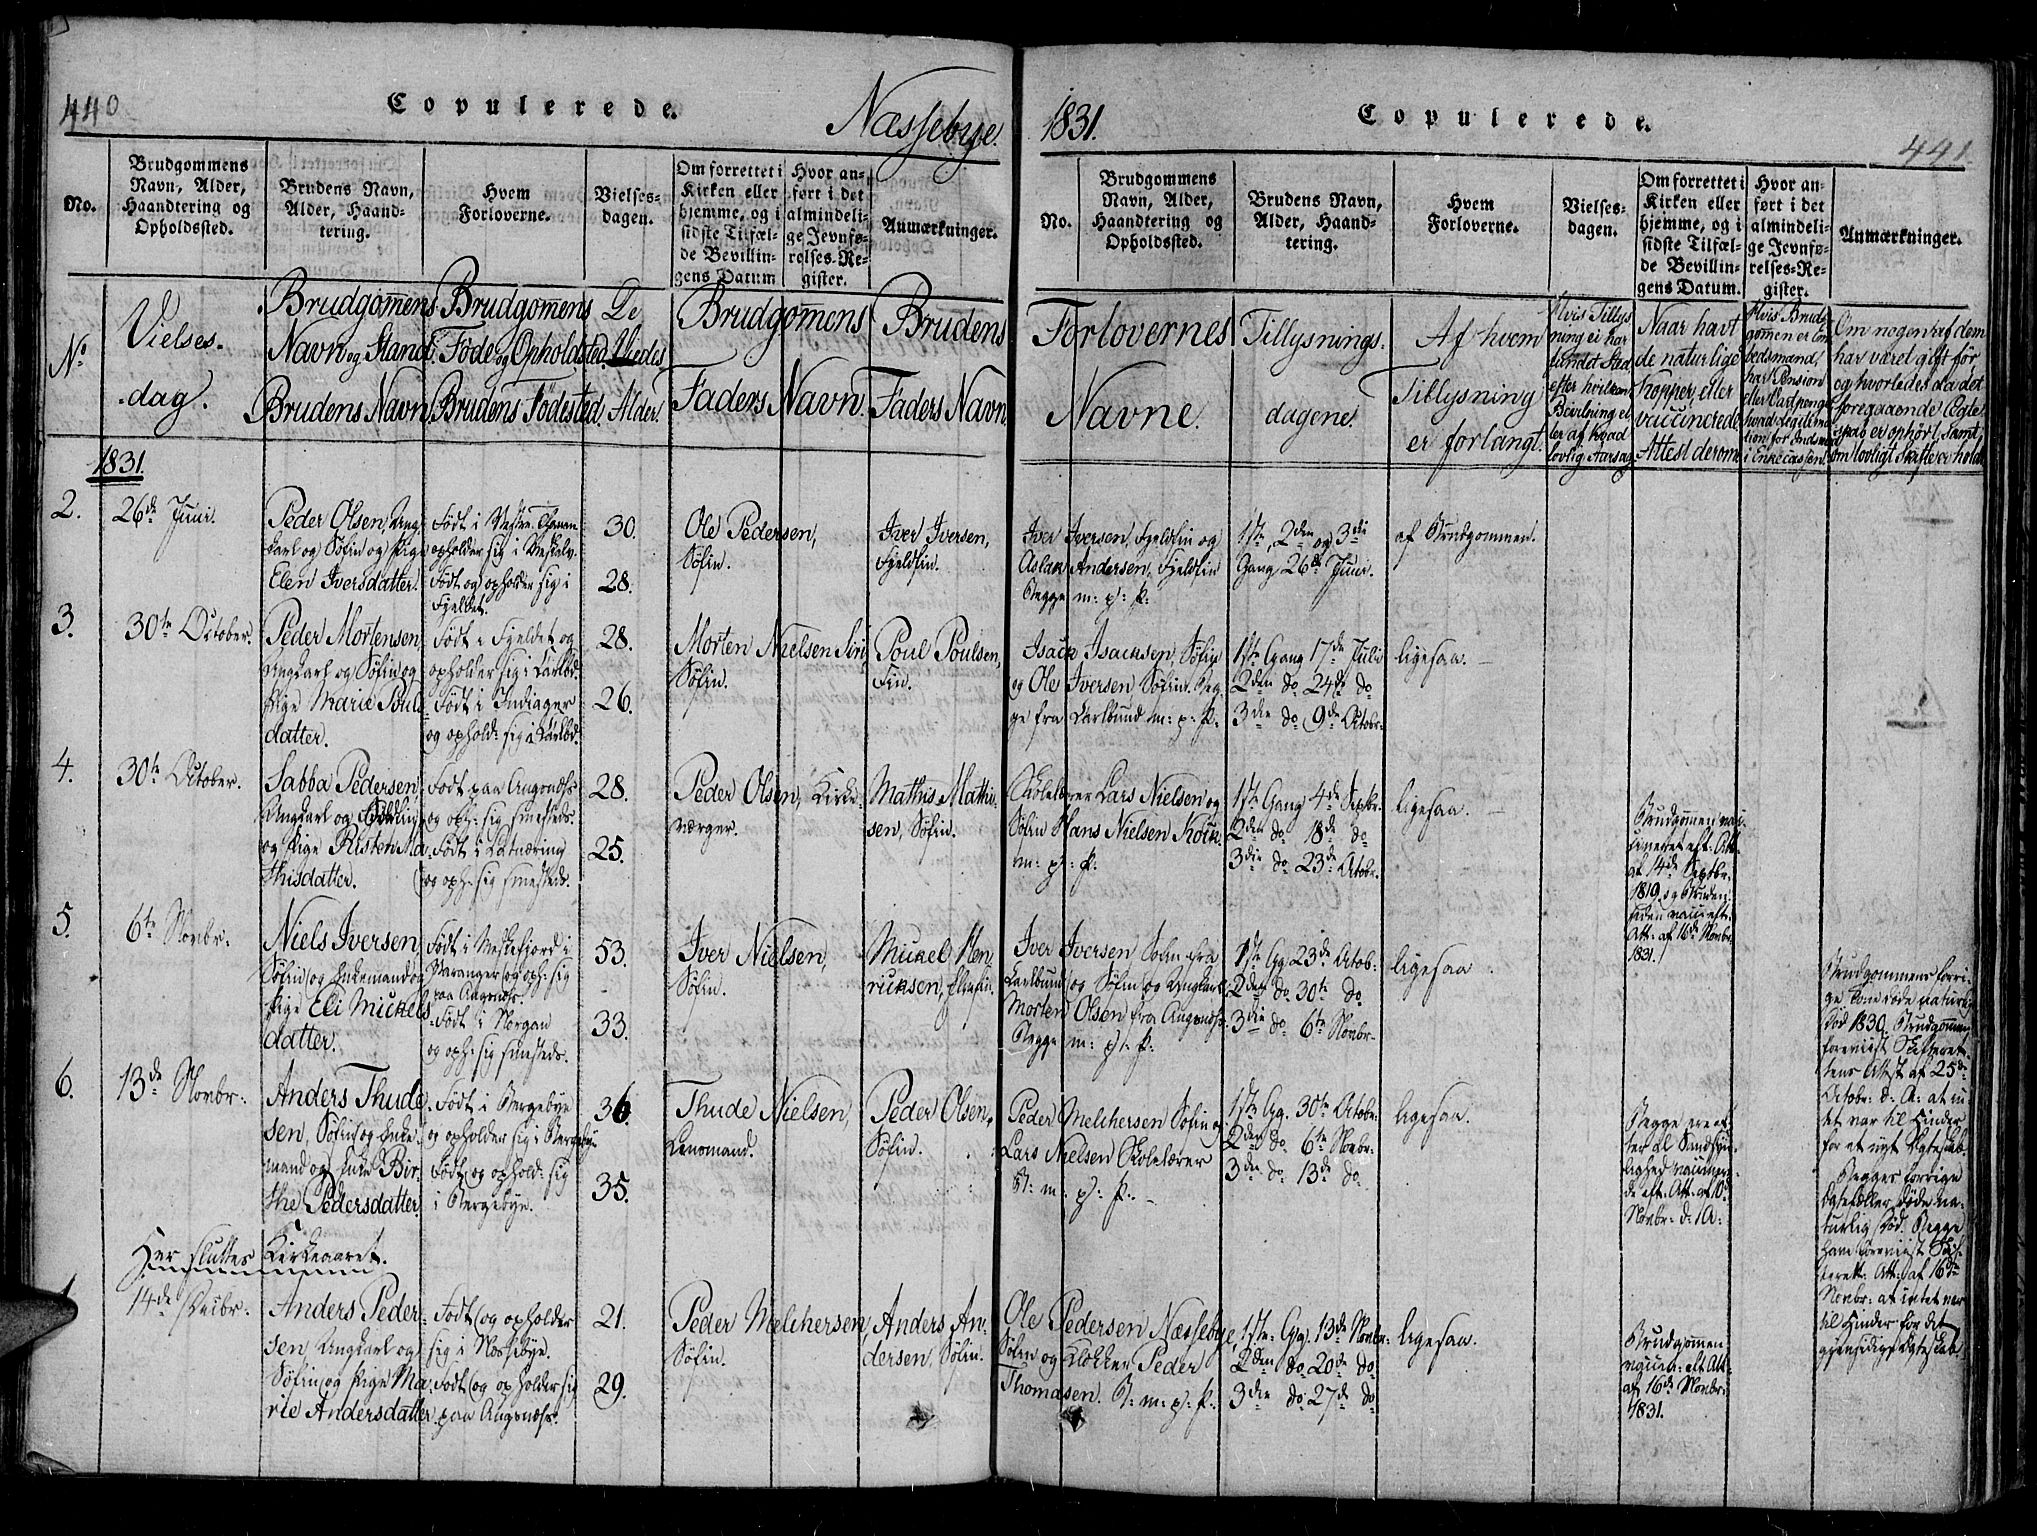 440
Copulerede.
Næssebye.
No.
Brudgommens
Navn, Alder,
Haandtering og
Opholdssted.
Brudens Navn,
Alder, Haand-
tering.
Hvem
Forloverne.
Vielses-
dagen.
Om forrettet i
Kirken eller
hjemme, og i
sidste Tilfæl-
de Bevillin-
gens Datum
Hvor an-
ført i det
almindeli-
ge Jevnfø-
relses-Re-
gister.
Anmærkninger.
No
Vielses-
dag.
Brudgomens
Navn og Stand.
Brudens Navn.
Brudgomens
Føde og Opholdsted.
Brudens Fødested.
De
Viedes
Alder.
Brudgomens
Faders Navn.
Brudens
Faders Navn.
1831.
2.
26de Juni.
Peder Olsen, Ung-
karl og Søfin og Pige
Elen Iversdatter.
opholder sig i Meskelv.
Født og opholder sig i
Fjeldet.
30.
28.
Ole Pedersen,
Søfin.
Iver Iversen,
Fjeldfin.
3.
30te October.
Peder Mortensen
Ungkarl og Søfin og
Pige Marie Pouls-
datter.
Født i Fjeldet og
opholder sig i Karlbd.
Født i Indiager
og ophold: sig i Karlbd.
28.
26.
Morten Nielsen Siri,
Søfin.
Poul Poulsen,
Fin.
4.
30te October.
Sabba Pedersen,
Ungkarl og
og Pige Risten Ma-
thisdatter.
Født paa Angsnæs
og oph: sig smesteds.
og oph: sig smesteds.
28.
25.
Peder Olsen, Kirke-
værger.
Mathis Mathi-
sen, Søfin.
5.
6te Novbr:
Niels Iversen
Søfin og Enkemand og
Pige Eli Mickels-
datter.
Født i Meskefjord i
Varanger og oph: sig
paa Angsnæs.
Født i Norgan
og oph: sig smesteds.
53.
33.
Iver Nielsen,
Søfin.
Mickel Hen-
ricksen, Elvefin.
6.
13de Novbr:
Anders Thude-
sen, Søfin og Enke-
mand og Enke Bir-
the Pedersdatter.
Født i Bergebye
og opholder sig i Bergebye.
Født og ophold: sig
i Bergebye.
36.
35.
Thude Nielsen,
Lensmand.
Peder Olsen,
Søfin.
Her sluttes Kirkeaaret.
1
14de Decbr:
Anders Peder-
sen Ungkarl og
Søfin og Pige Ma-
rie Andersdatter
Født og opholder
sig i Næssebye.
Født og opholder sig
paa Angsnæs.
21.
29.
Peder Melchersen
Søfin.
Anders An-
dersen, Søfin.
1831.
Copulerede.
441
No.
Brudgommens
Navn, Alder,
Haandtering og
Opholdssted.
Brudens Navn,
Alder, Haand-
tering.
Hvem
Forloverne.
Vielses-
dagen.
Om forrettet i
Kirken eller
hjemme, og i
sidste Tilfæl-
de Bevillin-
gens Datum.
Hvor an-
ført i det
almindeli-
ge Jevnfø-
relses-Re-
gister.
Anmærkninger.
Forlovernes
Navne.
Tillysnings-
dagene.
Af hvem
Tillysning
er forlangt.
Hvis Tillys-
ning ei har
fundet Sted
efter hvilken
Bevilning el-
ler af hvad
lovlig Aarsag.
Naar havt
de naturlige
kopper, eller
vaccinerede
Attest derom.
Hvis Brud-
gomen er Em-
bedsmand,
har Pension
eller Vartpenge
hvad Legitima-
tion for Indskud
i Enkecassen.
Om nogen af dem
har været gift før,
og hvorledes da det
foregaaende Ægte-
skab er ophørt, samt
om lovligt Skifte er holdt.
Iver Iversen, Fjeldfin og
Aslak Andersen, Fjeldfin
Begge m: p: P:
1ste, 2den og 3die
Gang 26de Juni.
af Brudgommen.
Isack Isacksen, Søfin
og Ole Iversen, Søfin. Beg-
ge fra Karlbund m: p: P:
1ste Gang 17de Juli
2den do 24de do
3die do 9de Octobr:
ligesaa.
Skolelærer Lars Nielsen og
Søfin Hans Nielsen Koik.
m: p: P:
1ste Gang 4de Septbr.
2den do 18de do
3die do 23de Octobr.
ligesaa.
Brudgomen vac-
cineret eft: Att:
af 14de Septbr.
1819 og Bruden
Att: af 16de Novbr
1831.
Iver Iversen Søfin fra
Karlbund og Søfin og Ungkarl
Morten Olsen fra Angsnæs.
Begge m: p: P:
1ste Gg 23de Octob:
2den do 30te do
3die do 6te Novbr:
ligesaa.
Brudgommens forri-
ge Kone døde naturlig
Død 1830. Brudgommen
foreviist Skifteret-
tens Attest af 25de
Octobr: d: A: at in-
tet var til Hinder
for et nyt Ægteskab.
Peder Melchersen Søfin og
Lars Nielsen Skolelærer
B: m: p: P:
1ste Gg. 30te Octobr:
2den do 6te Novbr:
3die do 13de do
ligesaa.
Begge ere ef-
ter al Sandsyn-
lighed vaccinere-
de eft: Att: af 10de
Novbr: d: A:
Begges forrige
Ægtefæller døde na-
turlig Død. Begge
have foreviist Skif-
terett: Att: af 16de
Novbr: at intet var
til Hinder for det
gjensidige Ægteskab.
Ole Pedersen Næssebye,
Søfin og Klokker Peder
Thomasen. B: m: p: P:
1ste Gg. 13de Novbr:
2den do 20de do
3die do 27de do
ligesaa.
Brudgomen
vaccin: eft Att:
af 16de Novbr:
1831.